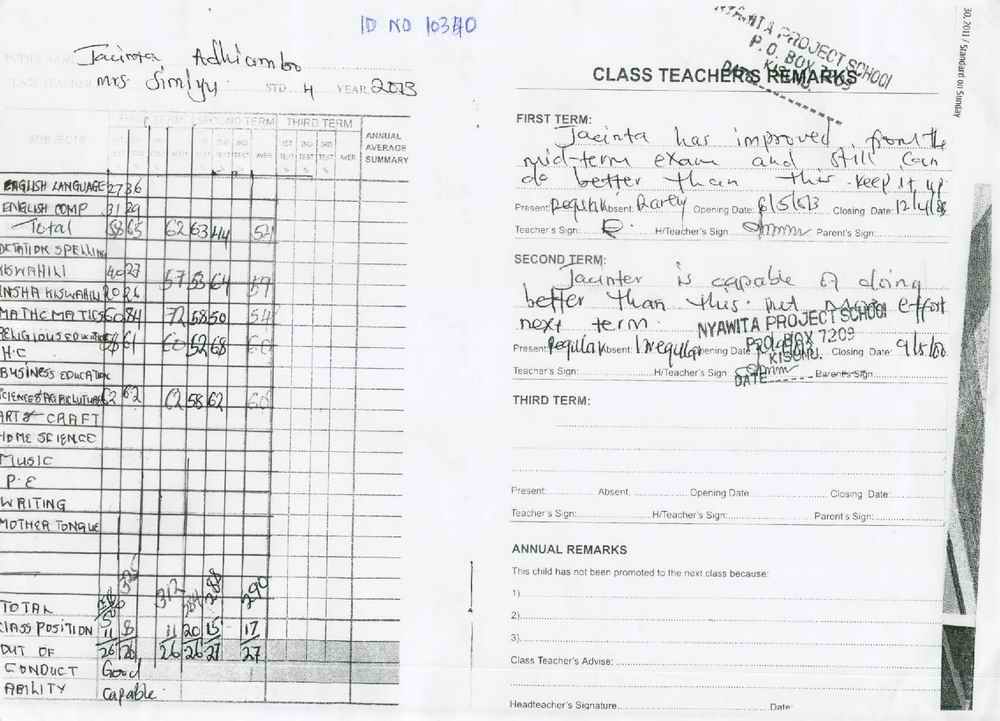 ID NO 10340
Jacinta Adhiambo
Mrs Simiyu STD 4 YEAR 2013
FIRST TERM SECOND TERM THIRD TERM
SUBJECTS
1ST TEST 2ND TEST 3RD TEST AVER
ANNUAL AVERAGE SUMMARY
ENGLISH LANGUAGE 27 36
ENGLISH COMP 31 29
Total 58 65 62 63 44 54
DICTATION SPELLING
KISWAHILI 40 27
57 53 64 57
INSHA KISWAHILI 20 26
MATHEMATICS 60 84 72 58 50 54
RELIGIOUS EDUCATION 61 60 52 68 60
H.C
BUSINESS EDUCATION
SCIENCE & AGRICULTURE 62 62 62 58 62 60
ART & CRAFT
HOME SCIENCE
MUSIC
P.E
WRITING
MOTHER TONGUE
TOTAL 312 284 288 290
CLASS POSITION 11 8 11 20 15 17
OUT OF 26 26 26 26 27 27
CONDUCT Good
ABILITY Capable.
NYAWITA PROJECT SCHOOL
P.O. BOX 7209
KISUMU.
DATE
30, 2011 / Standard on Sunday
CLASS TEACHER'S REMARKS
FIRST TERM:
Jacinta has improved from the
mid-term exam and still can
do better than this. Keep it up
Present: Regular Absent: Rarely Opening Date: 6/5/013 Closing Date: 12/4/
Teacher's Sign: H/Teacher's Sign: Parent's Sign:
SECOND TERM:
Jacinter is capable of doing
better than this. put more effort
next term.
NYAWITA PROJECT SCHOOL
P.O. BOX 7209
KISUMU.
DATE
Present: Regular Absent: Irregular Opening Date: Closing Date:
Teacher's Sign: H/Teacher's Sign: Parent's Sign
THIRD TERM:
Present: Absent. Opening Date. Closing Date:
Teacher's Sign: H/Teacher's Sign: Parent's Sign:
ANNUAL REMARKS
This child has not been promoted to the next class because:
1)
2)
3)
Class Teacher's Advise:
Headteacher's Signature Date: